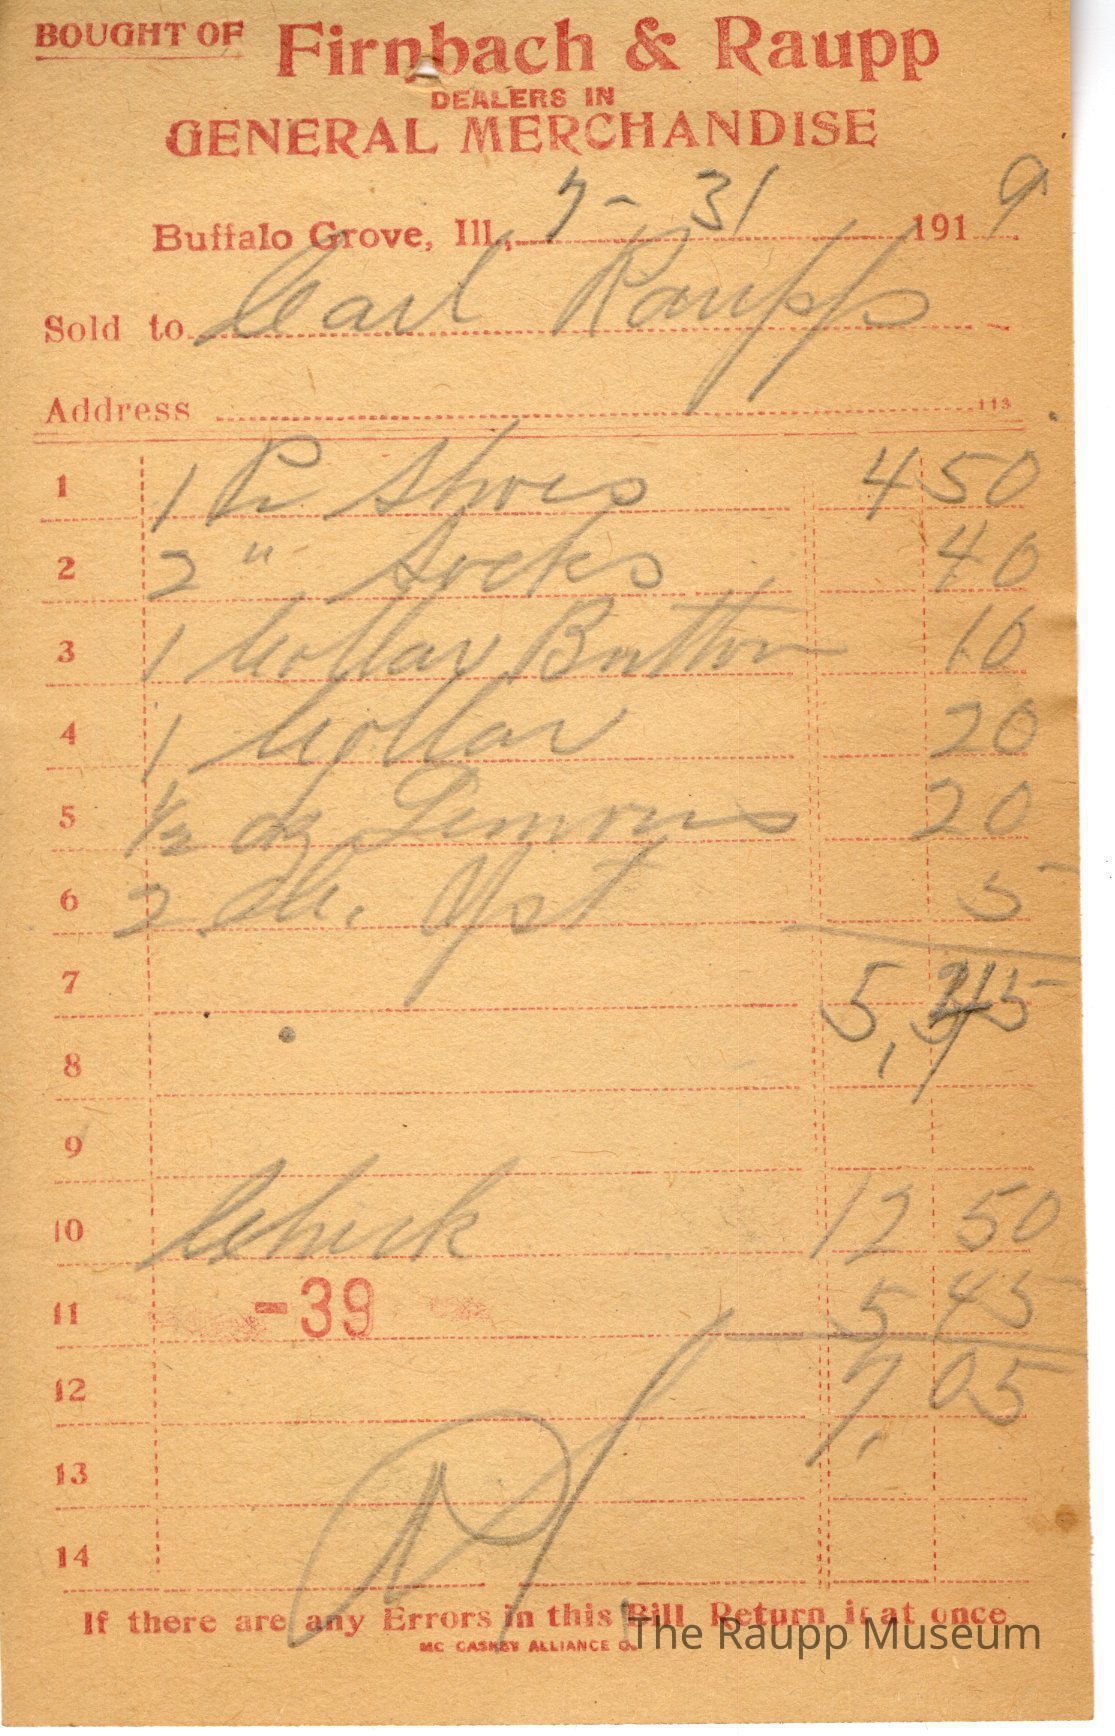 BOUGHT OF Firnbach & Raupp
DEALERS IN
GENERAL MERCHANDISE
Buffalo Grove, Ill., 7-31 1919
Sold to Carl Raupp
Address 113
1 1 Pr Shoes 4 50
2 2 " Socks 40
3 1 Collar Button 10
4 1 Collar 20
5 1/2 dz Lemons 20
6 2 Yst 5
7 5,45
8
9
10 Check 12 50
11 -39 5 45
12 7.05
13
14
If there are any Errors in this Bill Return it at once
MC CASKEY ALLIANCE O.
The Raupp Museum